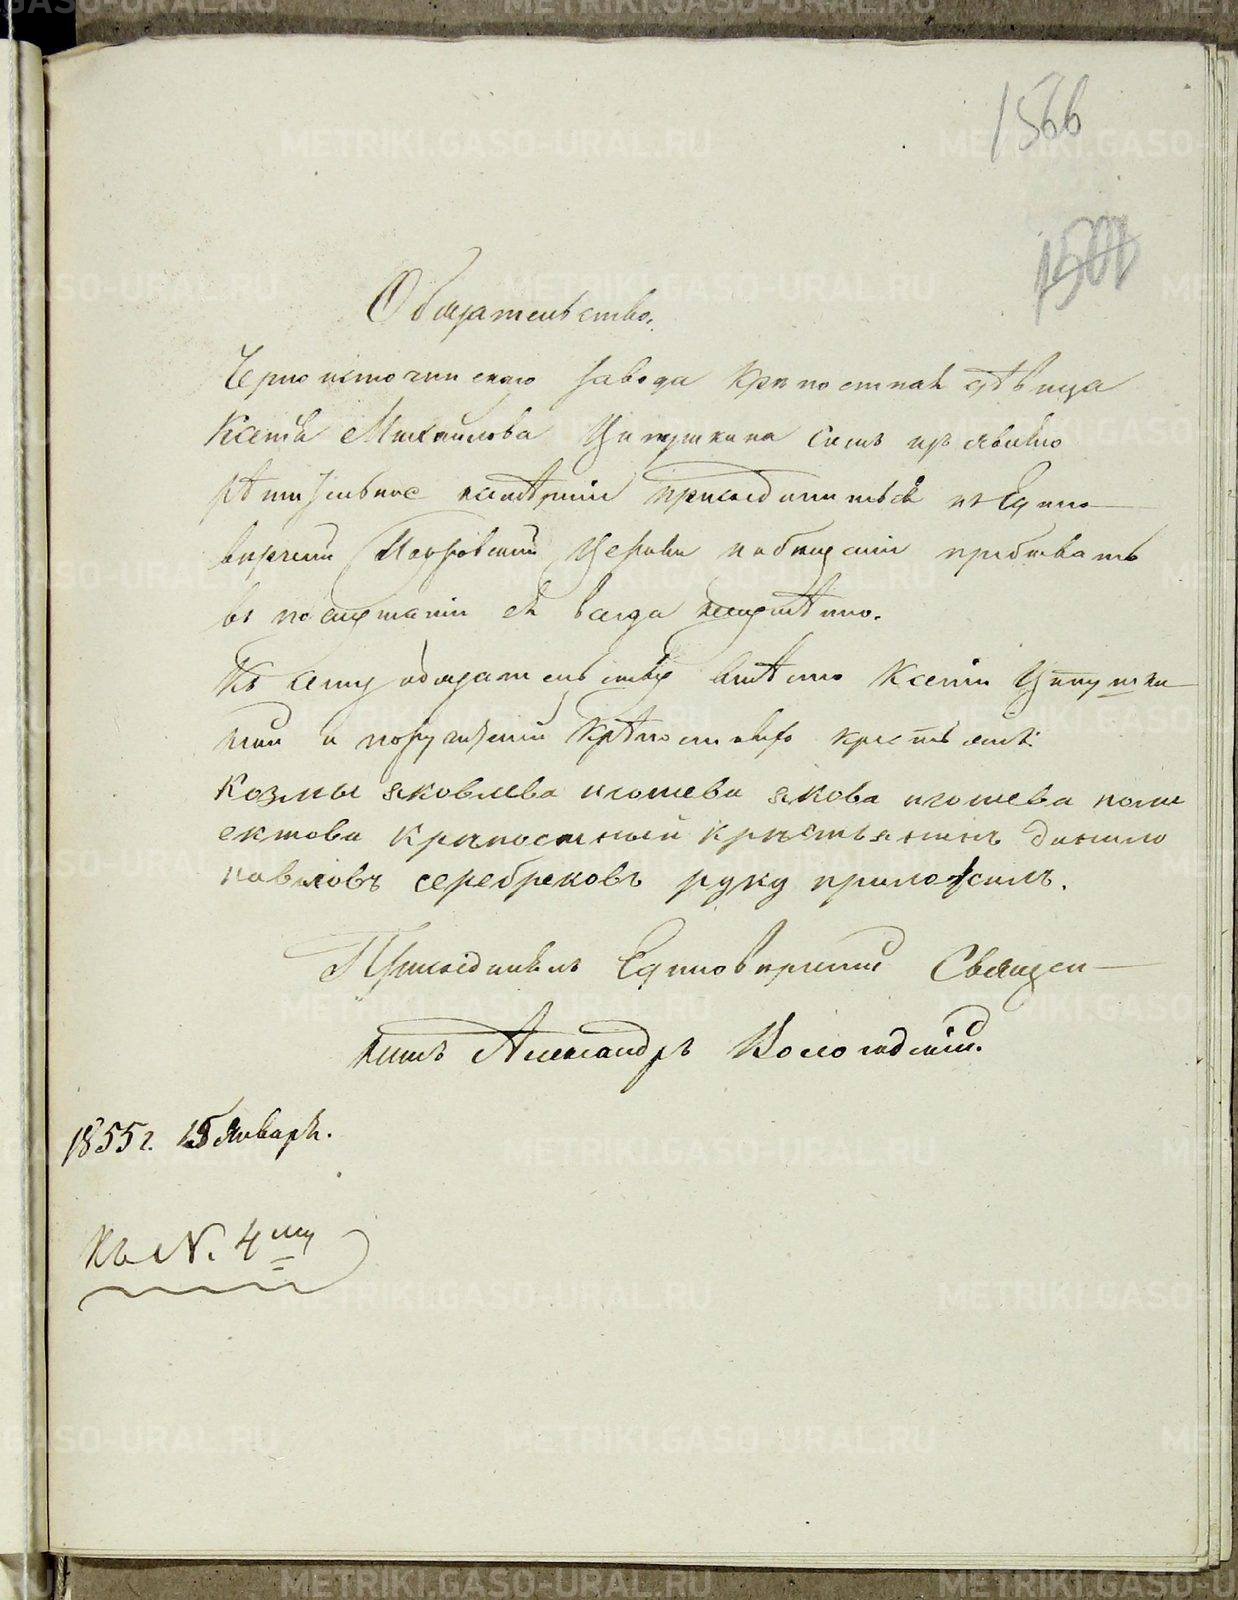 1566
1500
Обязательство.
Черноисточинскаго завода крепостная дѣвица
Ксенія Михайлова Ципушкина симъ изъявивъ
рѣшительное намѣреніе присоединиться къ Едино-
верческой Церкви и обещаніи пребывать
въ послушаніи ея всегда
Къ сему обязательству вмѣсто Ксеніи Ципушки-
ной и поручителей крѣпостныхъ крестьянъ:
козмы яковлева игошева якова игошева поли
ектова крѣпостный крестьянинъ данило
павловъ серебряковъ руку приложилъ.
Присоединилъ Единоверческій Священ-
никъ Александръ Вологодскій.
1855 г. 15 Января.
Къ N. 4му
METRIKI.GASO-URAL.RU